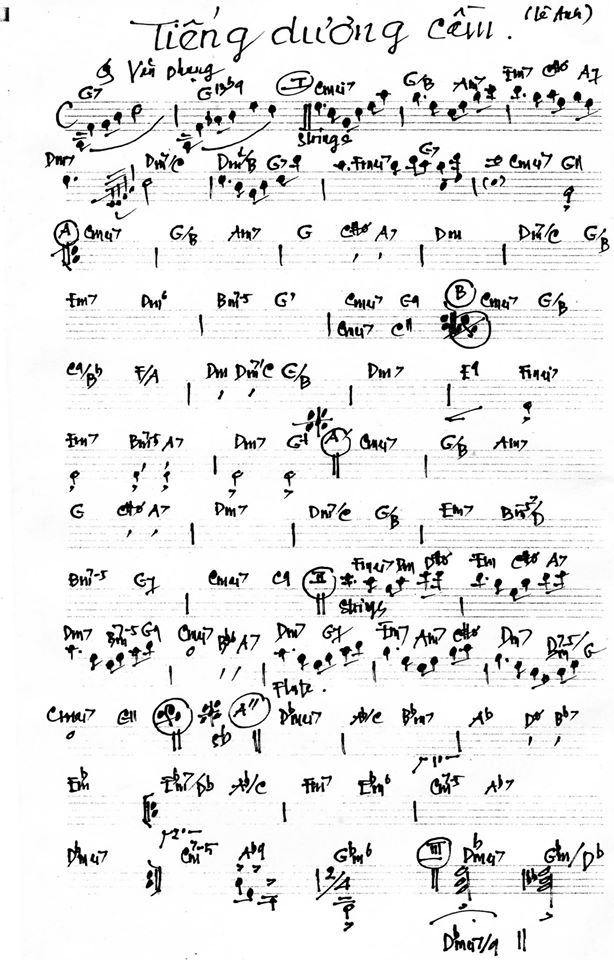 Tiếng dương cầm. (Lê Anh)
Văn Phụng
G7 G13b9 I Cmaj7 G/B Am7 Em7 C#o A7
Strings
Dm7 Dm7/C Dm7/B G7 Fmaj7 G7 Cmaj7 G11
A Cmaj7 G/B Am7 G C#o A7 Dm Dm7/C G/B
Em7 Dm6 Bm7-5 G7 Cmaj7 G9 B Cmaj7 G/B
Cmaj7 C11
C9/Bb F/A Dm Dm7/C G/B Dm7 E9 Fmaj7
Em7 Bm7-5 A7 Dm7 G11 A' Cmaj7 G/B Am7
G C#o A7 Dm7 Dm7/C G/B Em7 Bm7-5/D
Bm7-5 G7 Cmaj7 C9 II Fmaj7 Dm D#o Em C#o A7
Strings
Dm7 Bm7-5 G9 Cmaj7 Bb6 A7 Dm7 G7 Em7 Am7 C#o Dm7 Dm7-5/G
Flute.
Cmaj7 G11 A" Dbmaj7 Ab/C Bbm7 Ab Do Bb7
5b
1o
Ebm Ebm7/Db Ab/C Fm7 Ebm6 Cm7-5 Ab7
2o
Dbmaj7 Cm7-5 Ab9 Gbm6 III Dbmaj7 Gbm/Db
2/4
Dbmaj7/9